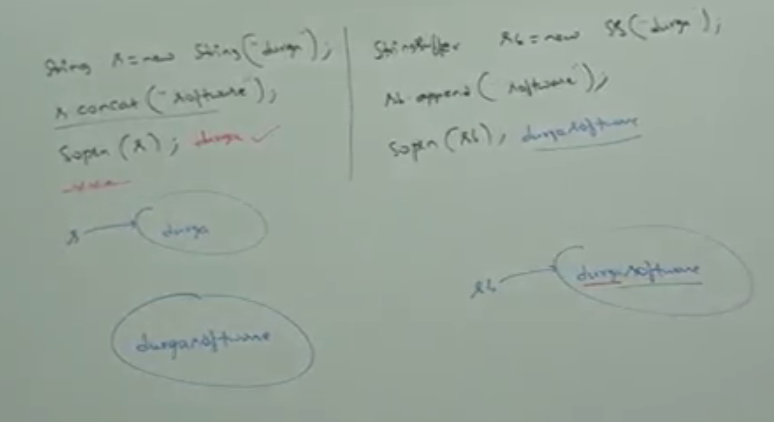 String s=new String("durga");
s.concat("software");
Sopln(s); durga ✓
s → durga
durgasoftware
StringBuffer sb=new SB("durga");
sb.append("software");
Sopln(sb); durgasoftware
sb → durgasoftware